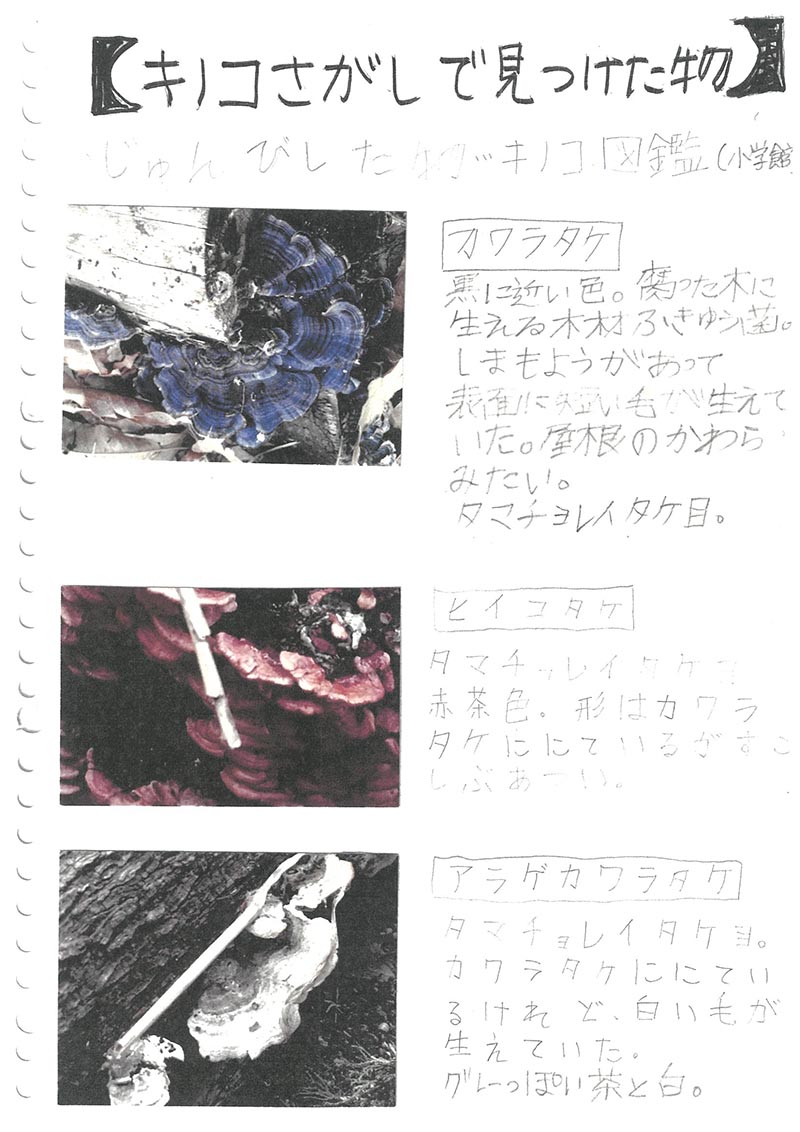 【キノコさがしで見つけた物】
じゅんびした物…キノコ図鑑(小学館)
カワラタケ
黒に近い色。腐った木に
生える木材ふきゅう菌。
しまもようがあって
表面に短い毛が生えて
いた。屋根のかわら
みたい。
タマチョレイタケ目。
ヒイコタケ
タマチョレイタケヨ
赤茶色。形はカワラ
タケににているがすこ
しぶあつい。
アラゲカワラタケ
タマチョレイタケヨ。
カワラタケににてい
るけれど、白い毛が
生えていた。
グレーっぽい茶と白。